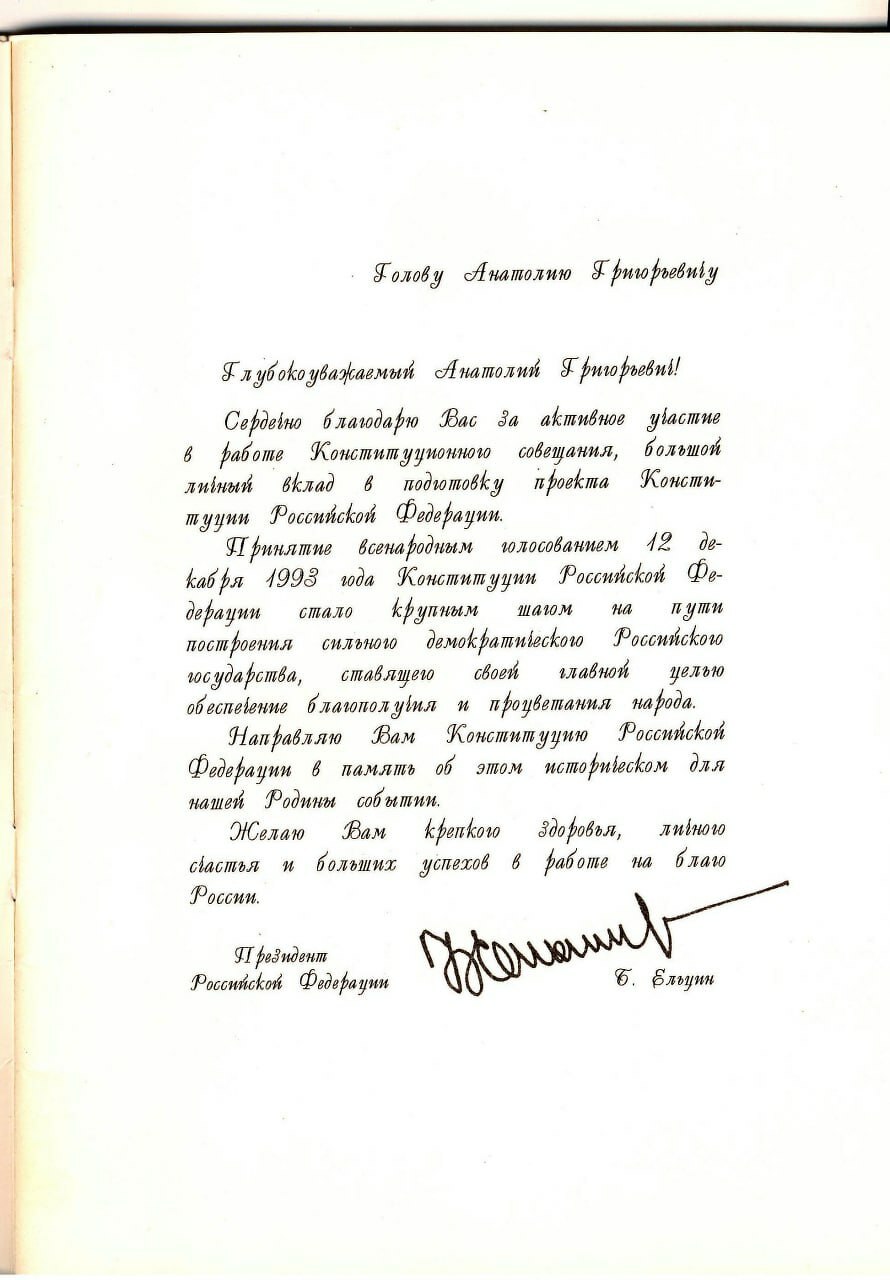 Голову Анатолию Григорьевичу
Глубокоуважаемый Анатолий Григорьевич!
Сердечно благодарю Вас за активное участие
в работе Конституционного совещания, большой
личный вклад в подготовку проекта Консти-
туции Российской Федерации.
Принятие всенародным голосованием 12 де-
кабря 1993 года Конституции Российской Фе-
дерации стало крупным шагом на пути
построения сильного демократического Российского
государства, ставящего своей главной целью
обеспечение благополучия и процветания народа.
Направляю Вам Конституцию Российской
Федерации в память об этом историческом для
нашей Родины событии.
Желаю Вам крепкого здоровья, личного
счастья и больших успехов в работе на благо
России.
Президент
Российской Федерации Б. Ельцин